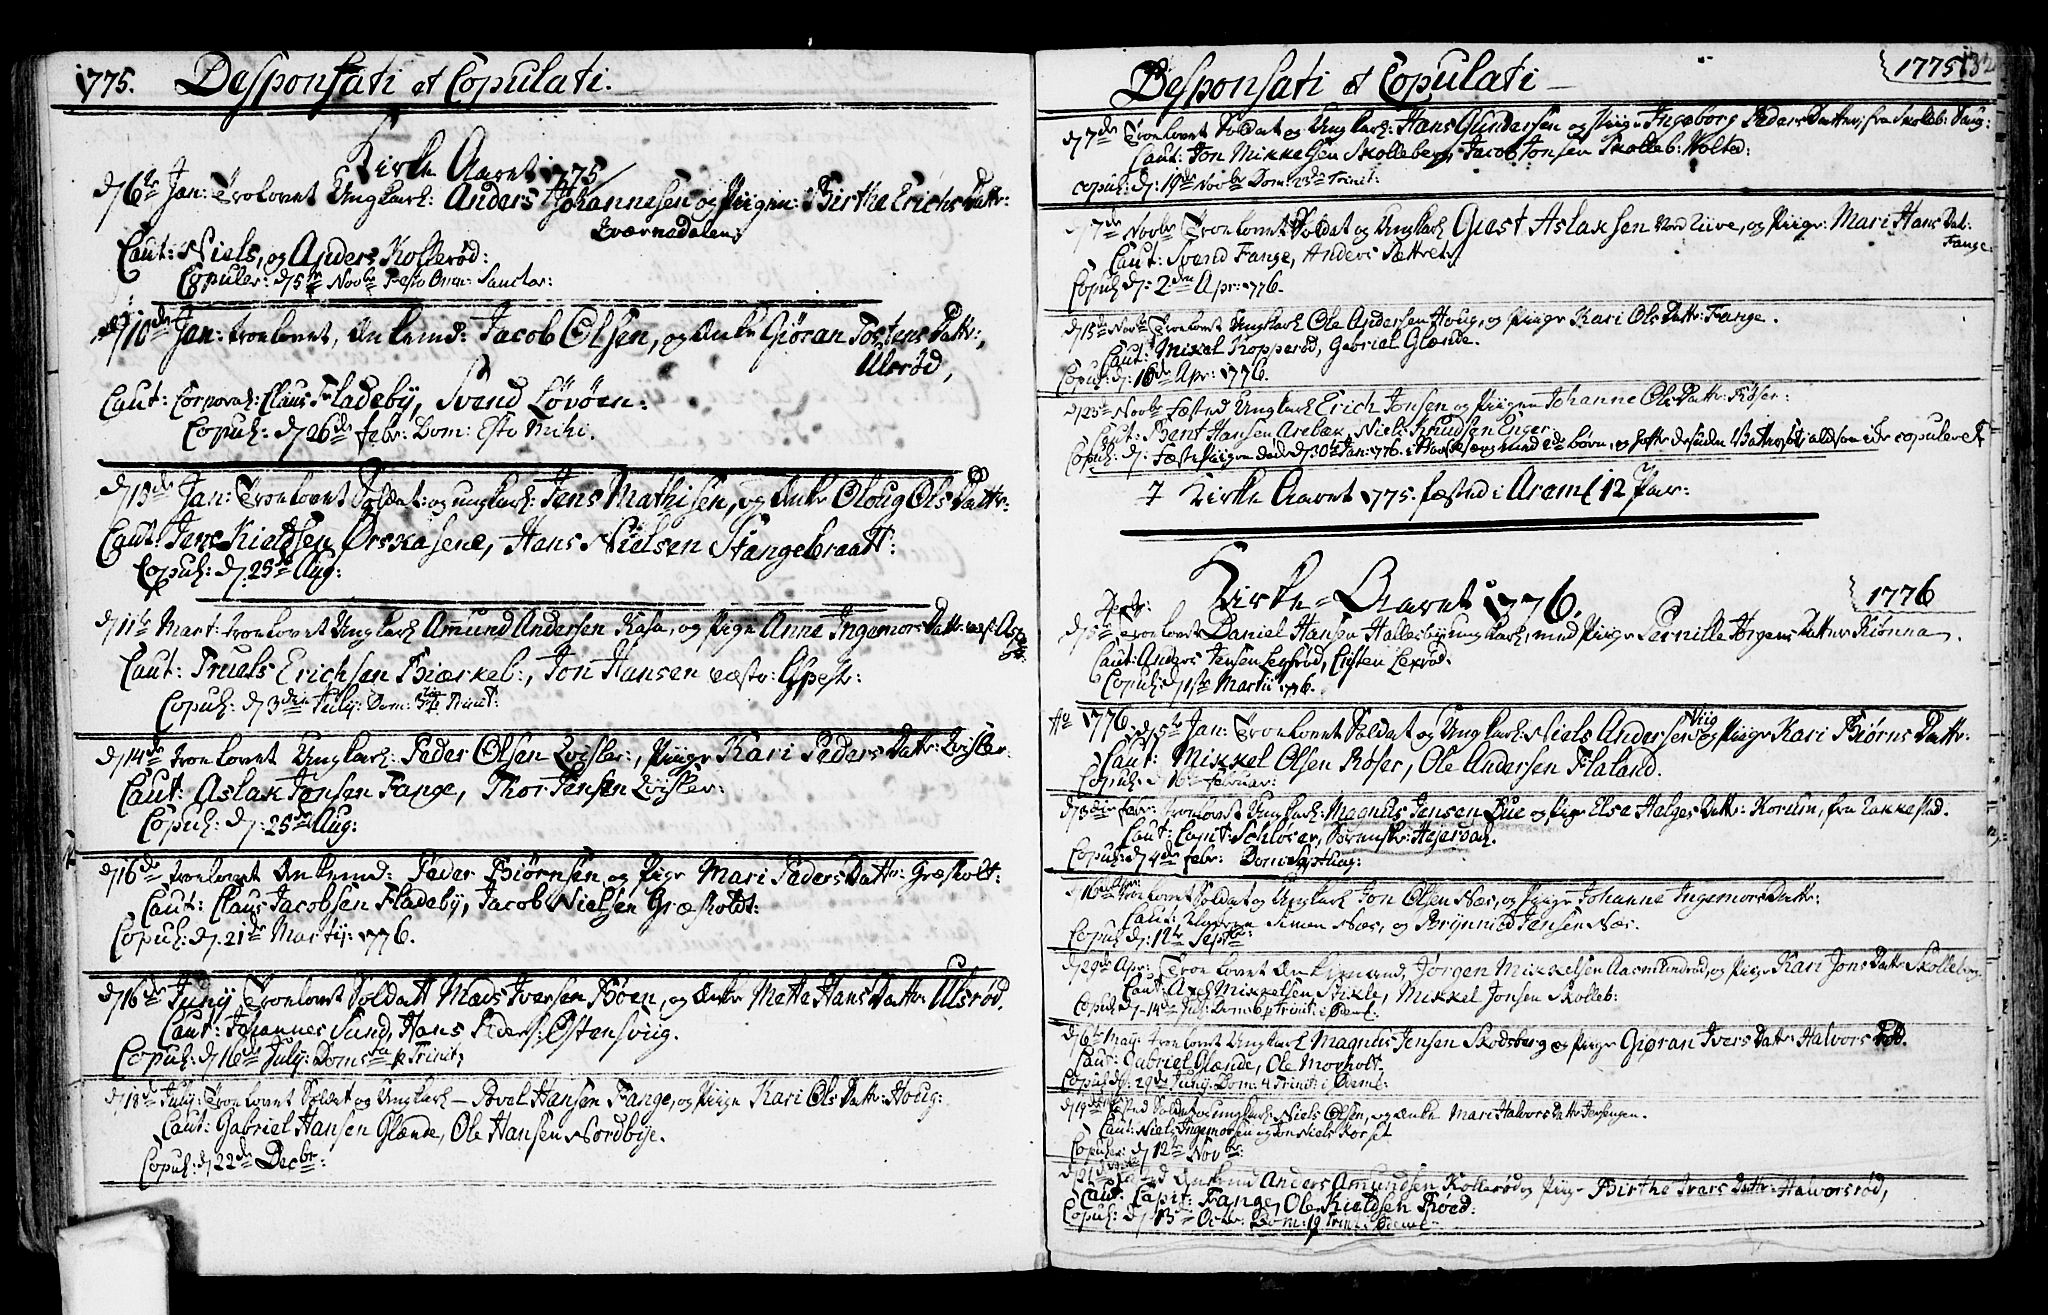 1775. Desponsati et Copulati.
Kirke Aaret 1775
d 6te Jan: Trolovet Ungkarl: Anders Johannesen og Piigen: Birthe Erichs Dattr:
Kværnedalen:
Caut: Niels, og Anders Kollerød:
Copuler: d 5te Novbr Festo Omn: Sanctor:
d 10de Jan: troelovet, Enkemd: Jacob Olsen, og Enke Gjøran Tostens Dattr:,
Ulsrød,
Caut: Corporal: Claus Fladeby, Svend Løvøen:
Copul: d 26de Febr: Dom: Esto Mihi.
d 13de Jan: Troelovet Soldat: og ungkarl: Jens Mathisen, og Enke Oloug Ols Dattr:
Caut: Jens Kieldsen Ørskasene, Hans Nielsen Stangebraatt:
Copul: d: 25de Aug:
d 11te Mart: troelovet Ungkarl Amund Andersen Kasa, og Pige Anne Ingemors Dattr: vest:
Caut: Truels Erichsen Biærkeb:, Jon Hansen væstr: Gpestr:
Copul: d 3die July: Dom: Trinit:
d 14de troelovet Ungkarl: Peder Olsen Qvisler:, Piige Kari Peders Dattr: Qvisler
Caut: Aslak Jonsen Fange, Thor Jensen Qvisler:
Copul: d: 25de Aug:
d 16de troelovet Enkemd: Peder Biørnsen og Pige Mari Peders Dattr: Græsholt:
Caut: Claus Jacobsen Fladeby, Jacob Nielsen Græsholdt:
Copul: d: 21de Martij: 1776.
d 16de Junij Troelovet Soldatt Mads Iversen Bøen, og Enke Mette Hans Dattr Ulsrød.
Caut: Johannes Sund, Hans Peders: Østensviig.
Copul: d 16de July: Dom: 5ta p Trinit,
d 18de July: Troelovet Soldat og Ungkarl - Povel Hansen Fange, og Piige Kari Ols Dattr: Houg:
Caut: Gabriel Hansen Glænde, Ole Hansen Nordbye.
Copul: d 22de Decbr:
Desponsati et Copulati 1775 132
d 7de Troelovet Soldat og Ungkarl: Hans Gundersen og Piige Ingeborg Peders Datter, fra Skolleb:
Caut: Jon Mikkelsen Skolleberg, Jacob Jonsen Skolleb: Holted:
Copul: d: 19de Novbr Dom: 23de Trinit:
d 7de Novbr Troelovet Soldat og Ungkarl Giest Aslaksen Nord Liive, og Piige: Mari Hans Dat:
Fange:
Caut: Svend Fange, Anders Sættret,
Copul d: 2den Apr: 1776.
d 13de Novbr Troelovet Ungkarl Ole Andersen Houg, og Piige Kari Ols Dattr: Fange.
Caut: Mikel Kopperød, Gabriel Glænde.
Copul: d: 16de Apr: 1776.
d 23de Novbr Fæsted Ungkarl Erich Jonsen og Piigen Johanne Ols Dattr: Røser:
Caut: Bent Hansen Arebæk, Niels Knudsen Enger
Copul: d: Fæstepiigen døde d 30te Jan: 1776. i Barselseng med 1de børn, og hafte desuden altsaa icke copuleret
I Kirke Aaret 1775. fæsted i Arem 12 Par:
Kirke-Aaret 1776. 1776
Decbr:
d 5te Troelovet Daniel Hansen Hallesby ungkarl, med Piige Pernille Jørgens Datter Kiønna.
Caut: Anders Jensen Lexrød, Cristen Lexrød.
Copul: d 1ste Martii 1776.
Ao 1776 d 5te Jan: Troelovet Soldat og Ungkarl: Niels Andersen Viig og Piige Kari Biørns Dattr:
Caut: Mikkel Olsen Røser, Ole Andersen Flaland.
Copul: d 16de Februar:
d 3die Febr: troelovet Ungkarl: Magnus Jensen Bue og Pige Else Helges Dattr: Korum, fra Rakkestad.
Caut: Capt: Schlosser, Sorenskr: Hejerdal.
Copul: d 4de Febr: Dom: Septuag:
d 16de troelovet Soldat og Ungkarl Jon Olsen Næs, og Piige Johanne Ingemors Dattr:
Caut: Simen Næs, og Brynnild Jensen Næs.
Copul d: 12te Septbr
d 29de Apr: Troelovet Enkemand, Jørgen Mikkelsen Aasmundrød, og Piige Kari Jons Dattr Skolleborg,
Caut: Axel Mikkelsen Stikle, Mikkel Jonsen Skolleb:
Copul d 14de July: Dom: 6 p Trinit: i Øiem:
d 6te May: troelovet Ungkarl Magnus Jensen Skodsberg og Piige Giøran Ivers Datter Halvorsrød.
Caut: Gabriel Glænde, Ole Morholt.
Copul d: 29de Junij: Dom: 4 Trinit: i Øiem:
d 19de fæsted Soldat og Ungkarl: Niels Olsen, og Enke Mari Halvors Dattr Jensengen.
Caut: Niels Ingemorsen og Jon Niels Korset
Copuler: d 12te Novbr:
d 21de fæsted Enkemd Anders Amundsen Kollerød og Piige Birthe Ivers Dattr: Halvorsrød,
Caut: Capit: Fange, Ole Kieldsen Røed:
Copul: d 13de Octbr: Dom: 19 Trinit: i Øiem: